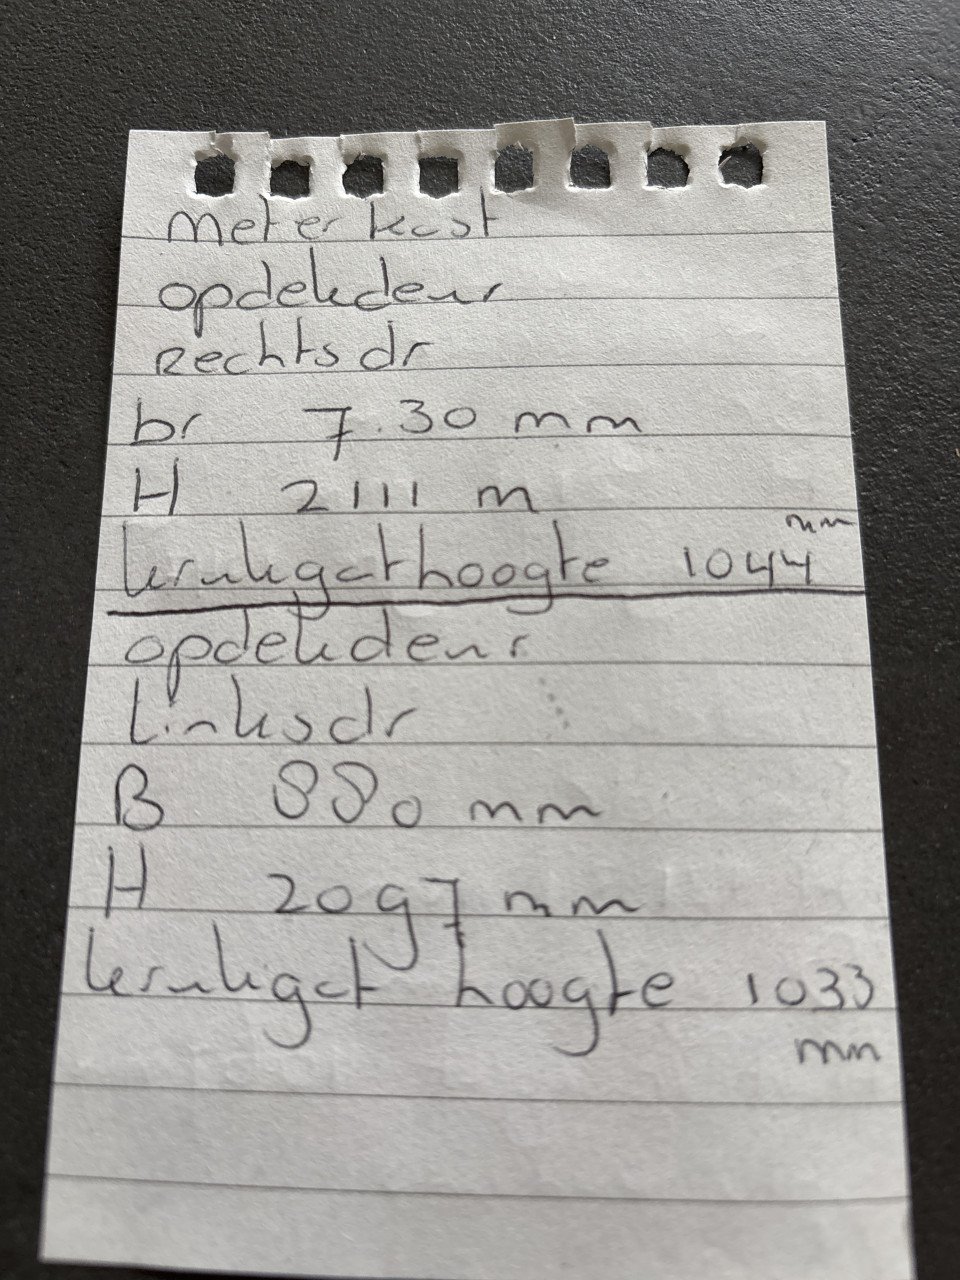 Meterkast
opdekdeur
Rechtsdr
br 7.30 mm
H 2111 m
krukgathoogte 1044 mm
opdekdeur
Linksdr
B 880 mm
H 2097 mm
krukgat hoogte 1033
mm